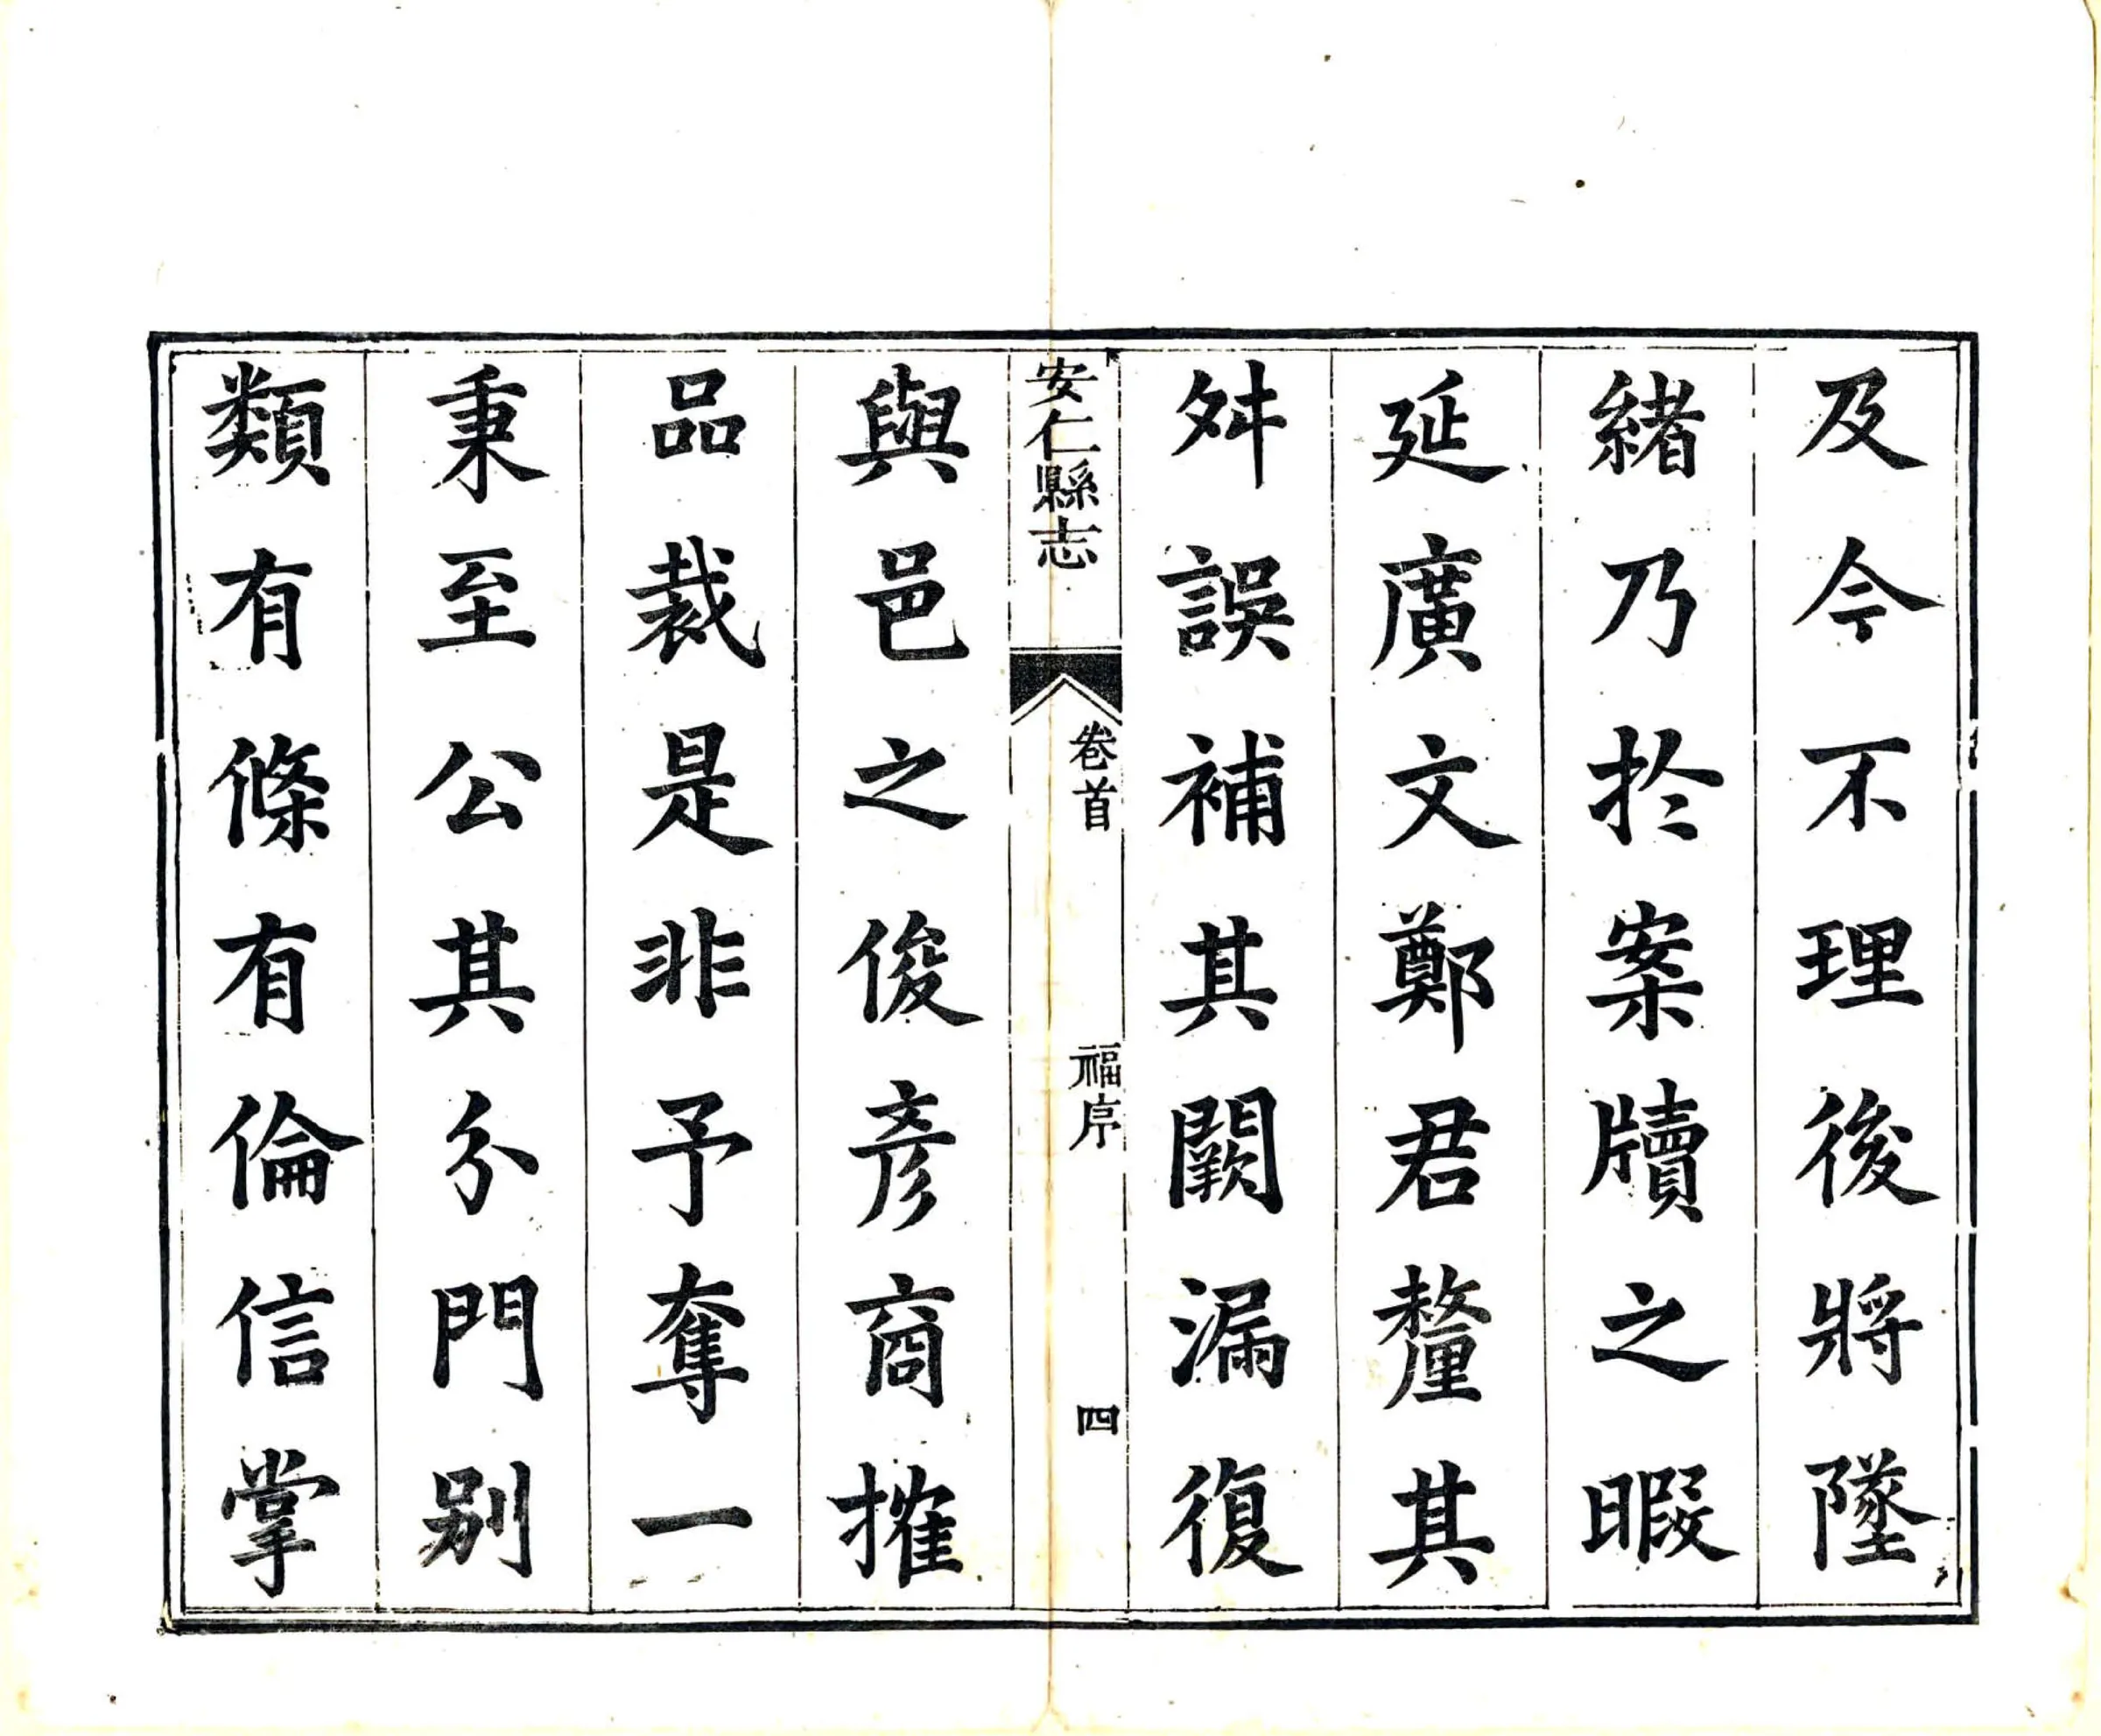 及今不理後將墜
緒乃於案牘之暇
延廣文鄭君釐其
舛誤補其闕漏復
安仁縣志
卷首
福序
四
與邑之俊彥商搉
品裁是非予奪一
秉至公其分門別
類有條有倫信掌